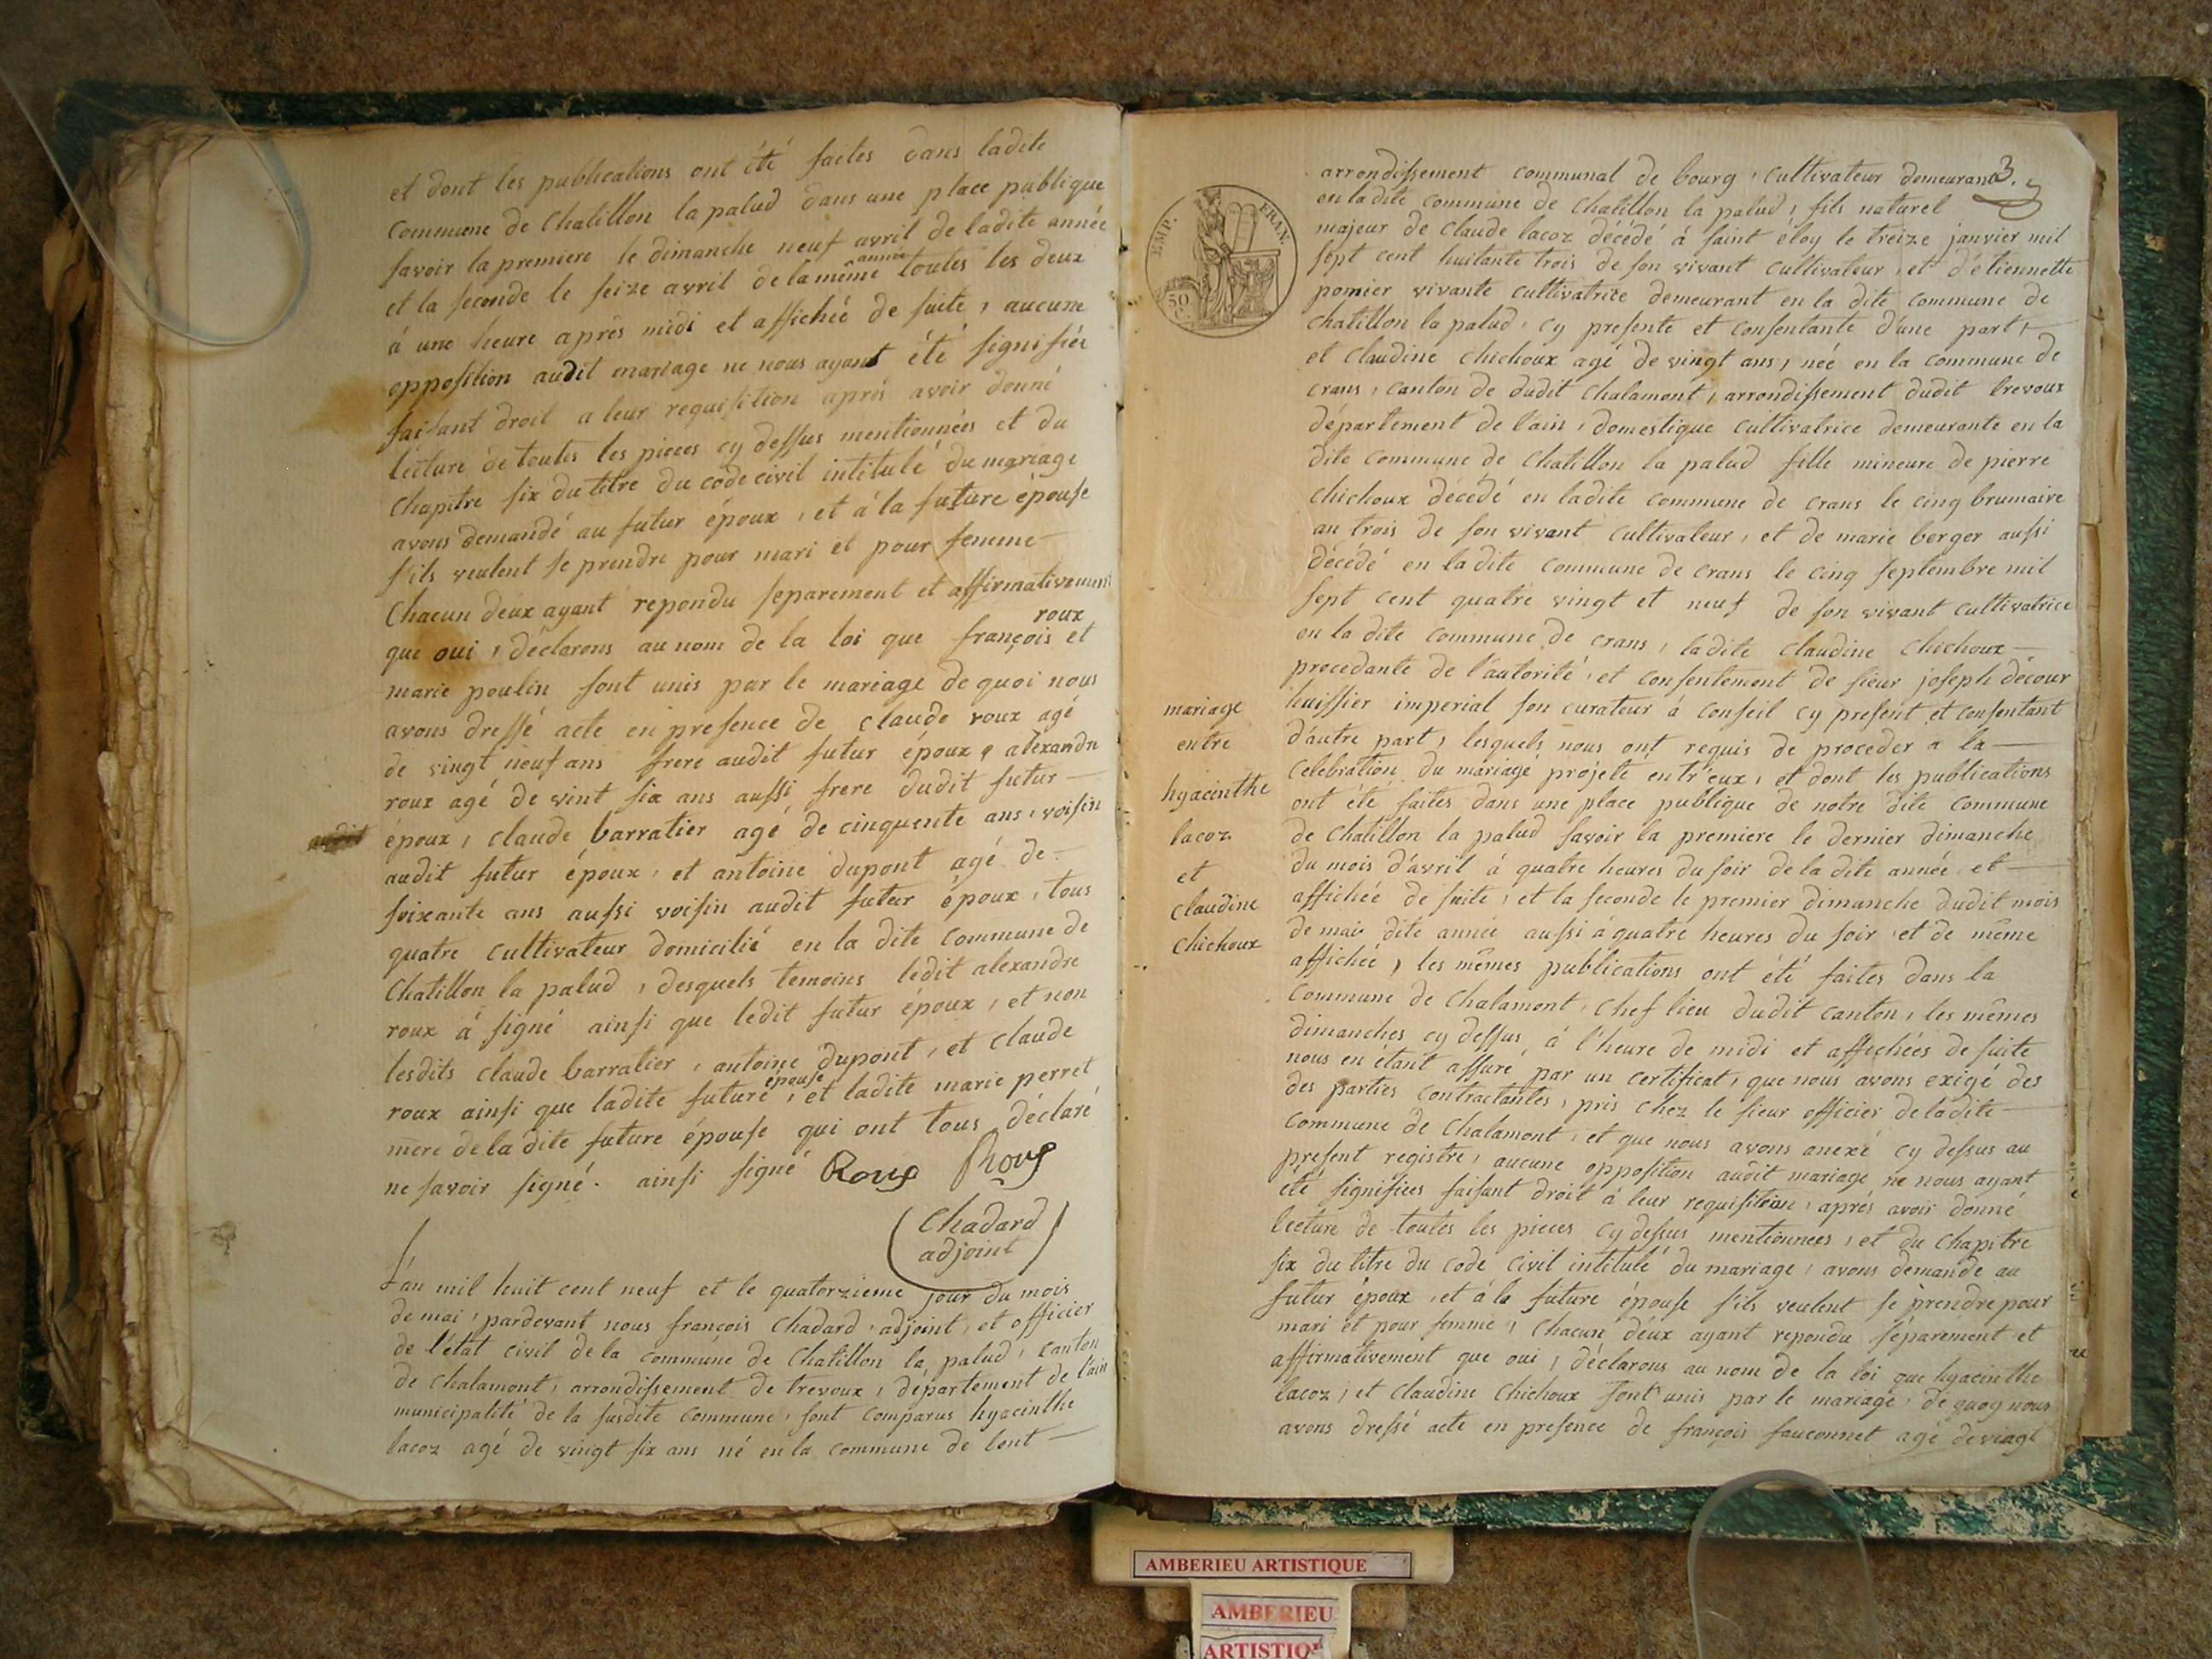 et dont les publications ont été faites dans ladite
commune de Chatillon la palud dans une place publique
savoir la premiere le dimanche neuf avril de ladite année
et la seconde le seize avril de la même année toutes les deux
à une heure après midi et affiché de suite, aucune
opposition audit mariage ne nous ayant été signifiée
faisant droit a leur requisition après avoir donné
lecture de toutes les pieces cy dessus mentionnées et du
chapitre six du titre du code civil intitulé du mariage
avons demandé au futur époux, et à la future épouse
s'ils veulent se prendre pour mari et pour femme
chacun deux ayant repondu separement et affirmativement
que oui, déclarons au nom de la loi que françois roux et
marie poulin sont unis par le mariage de quoi nous
avons dressé acte en presence de claude roux agé
de vingt neuf ans frere audit futur époux, alexandre
roux agé de vint six ans aussi frere dudit futur
époux, claude barratier agé de cinquante ans, voisin
audit futur époux, et antoine dupont agé de
soixante ans aussi voisin audit futur époux, tous
quatre cultivateur domicilié en la dite commune de
Chatillon la palud, desquels temoins ledit alexandre
roux à signé ainsi que ledit futur époux, et non
lesdits claude barratier, antoine dupont, et claude
roux ainsi que ladite future épouse, et ladite marie perret
mère de la dite future épouse qui ont tous déclaré
ne savoir signé. ainsi signé Roux Roux
Chadard
adjoint
L'an mil huit cent neuf et le quatorzieme jour du mois
de mai, pardevant nous francois Chadard, adjoint, et officier
de l'état civil de la commune de Chatillon la palud, canton
de chalamont, arrondissement de trevoux, département de l'ain
municipalité de la susdite commune, sont comparus hyacinthe
lacoz agé de vingt six ans né en la commune de lent
3.
EMP. FRAN.
50
arrondissement communal de bourg, cultivateur demeurant
en ladite commune de Chatillon la palud, fils naturel
majeur de Claude lacoz décédé à saint eloy le treize janvier mil
sept cent huitante trois de son vivant cultivateur, et d'etiennette
pomier vivante cultivatrice demeurant en la dite commune de
chatillon la palud, cy presente et consentante d'une part,
et claudine chichoux agé de vingt ans, née en la commune de
crans, canton de dudit Chalamont, arrondissement dudit trevoux
département de l'ain, domestique cultivatrice demeurante en la
dite commune de Chatillon la palud fille mineure de pierre
chichoux décédé en ladite commune de crans le cinq brumaire
an trois de son vivant cultivateur, et de marie berger aussi
décédé en la dite commune de crans le cinq septembre mil
sept cent quatre vingt et neuf de son vivant cultivatrice
en la dite commune de crans, ladite claudine chichoux
procedante de l'autorité, et consentement de sieur joseph décour
huissier imperial son curateur à conseil cy present et consentant
d'autre part, lesquels nous ont requis de proceder a la
celebration du mariage projeté entr'eux, et dont les publications
ont été faites dans une place publique de notre dite commune
de Chatillon la palud savoir la premiere le dernier dimanche
du mois d'avril à quatre heures du soir de la dite année et
affichée de suite, et la seconde le premier dimanche dudit mois
de mai dite année aussi à quatre heures du soir et de même
affichée, les mêmes publications ont été faites dans la
commune de Chalamont, chef lieu dudit canton, les mêmes
dimanches cy dessus, à l'heure de midi et affichées de suite
nous en étant assuré par un certificat, que nous avons exigé des
des parties contractantes, pris chez le sieur officier de ladite
commune de Chalamont, et que nous avons anexé cy dessus au
present registre, aucune opposition audit mariage ne nous ayant
été signifiées faisant droit à leur requisition, après avoir donné
lecture de toutes les pieces cy dessus mentionnees, et du chapitre
six du titre du code civil intitulé du mariage, avons demandé au
futur époux, et à la future épouse s'ils veulent se prendre pour
mari et pour femme, chacun d'eux ayant repondu séparement et
affirmativement que oui, déclarons au nom de la loi que hyacinthe
lacoz, et claudine chichoux sont unis par le mariage, de quoy nous
avons dressé acte en presence de françois fauconnet agé de vingt
mariage
entre
hyacinthe
lacoz
et
claudine
chichoux
AMBERIEU ARTISTIQUE
AMBERIEU